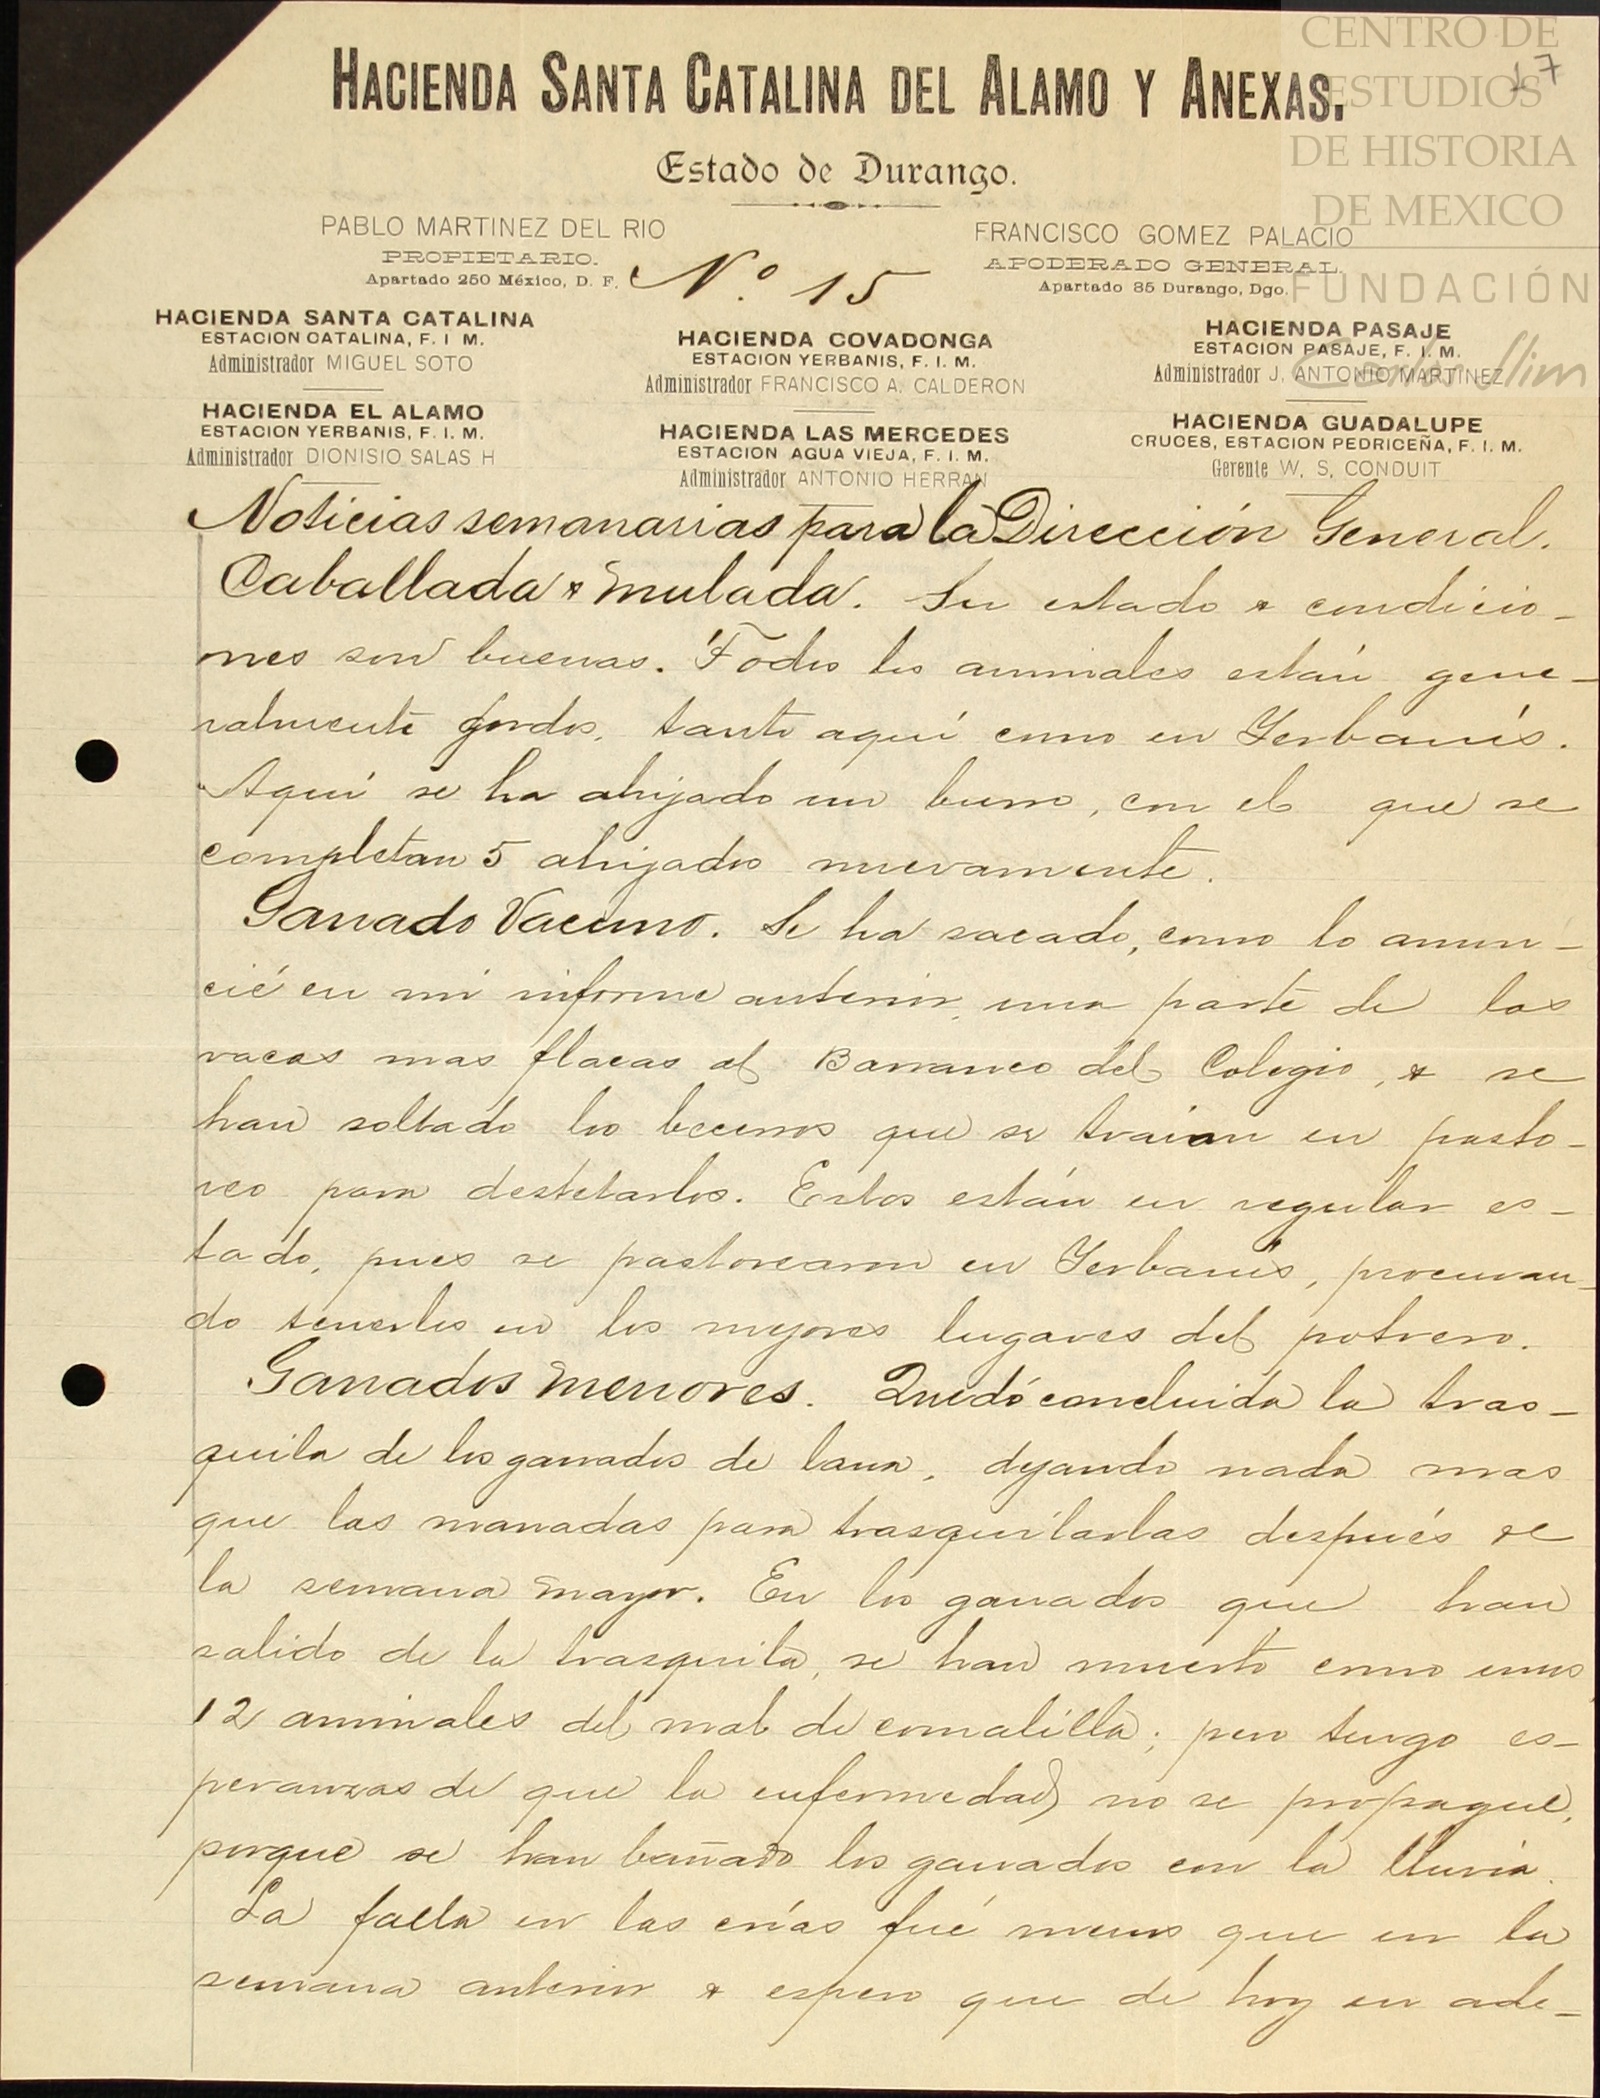 CENTRO DE
ESTUDIOS
DE HISTORIA
DE MEXICO
FUNDACIÓN
Carlos Slim
17
HACIENDA SANTA CATALINA DEL ALAMO Y ANEXAS.
Estado de Durango.
PABLO MARTINEZ DEL RIO
PROPIETARIO.
Apartado 250 México, D. F.
FRANCISCO GOMEZ PALACIO
APODERADO GENERAL.
Apartado 85 Durango, Dgo.
N.º 15
HACIENDA SANTA CATALINA
ESTACION CATALINA, F. I M.
Administrador MIGUEL SOTO
HACIENDA EL ALAMO
ESTACION YERBANIS, F. I. M.
Administrador DIONISIO SALAS H
HACIENDA COVADONGA
ESTACION YERBANIS, F. I. M.
Administrador FRANCISCO A. CALDERON
HACIENDA LAS MERCEDES
ESTACION AGUA VIEJA, F. I. M.
Administrador ANTONIO HERRAN
HACIENDA PASAJE
ESTACION PASAJE, F. I. M.
Administrador J. ANTONIO MARTINEZ
HACIENDA GUADALUPE
CRUCES, ESTACION PEDRICEÑA, F. I. M.
Gerente W. S. CONDUIT
Noticias semanarias para la Dirección General.
Caballada & mulada. Su estado & condicio-
nes son buenas. Todos los animales están gene-
ralmente gordos, tanto aquí como en Yerbanís.
Aquí se ha ahijado un burro, con el que se
completan 5 ahijados nuevamente.
Ganado Vacuno. Se ha sacado, como lo anun-
cié en mi informe anterior, una parte de las
vacas mas flacas al Barranco del Colegio, & se
han soltado los becerros que se traían en pasto-
reo para destetarlos. Estos están en regular es-
tado, pues se pastorearon en Yerbanís, procuran-
do tenerlos en los mejores lugares del potrero.
Ganados menores. Quedó concluida la tras-
quila de los ganados de lana, dejando nada mas
que las manadas para trasquilarlas después de
la semana mayor. En los ganados que han
salido de la trasquila, se han muerto como unos
12 animales del mal de cornalilla; pero tengo es-
peranzas de que la enfermedad no se propague,
porque se han bañado los ganados con la lluvia.
La falla en las crías fué menos que en la
semana anterior & espero que de hoy en ade-